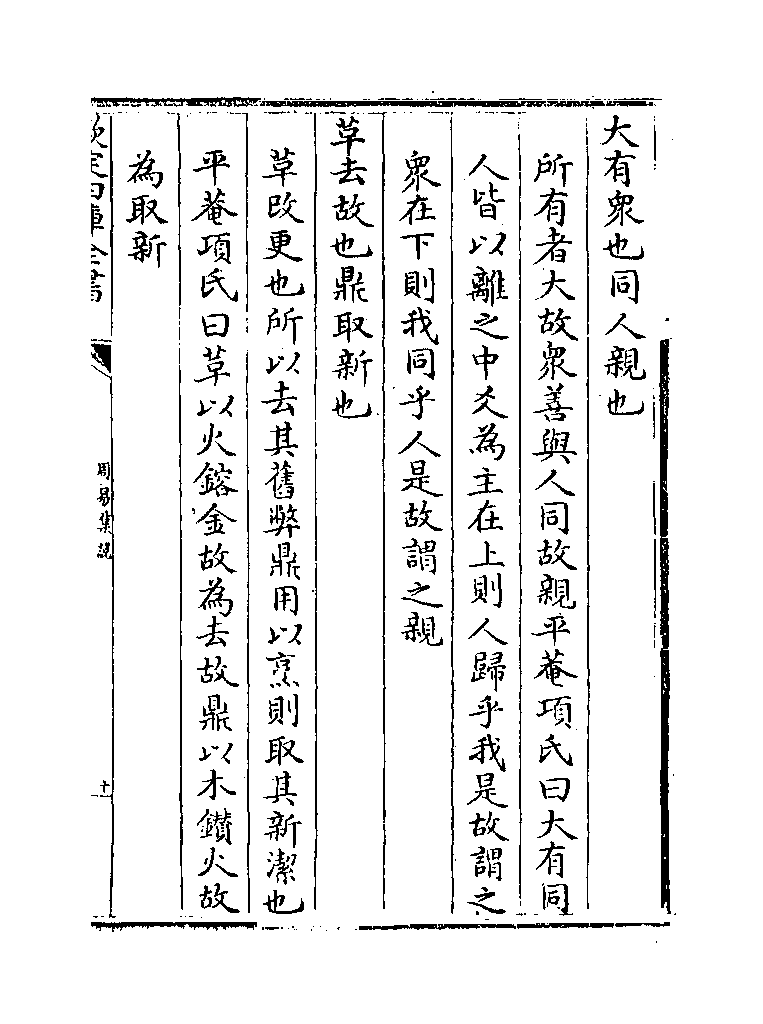 大有衆也同人親也
所有者大故衆善與人同故親平菴項氏曰大有同
人皆以離之中爻為主在上則人歸乎我是故謂之
衆在下則我同乎人是故謂之親
草去故也鼎取新也
草改更也所以去其舊弊鼎用以烹則取其新潔也
平菴項氏曰草以火鎔金故為去故鼎以木鑚火故
為取新
欽定四庫全書
周易集說
十一